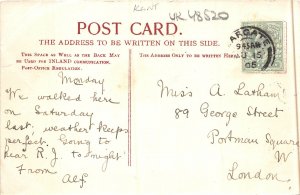 Kent
UK 48520
POST CARD.
THE ADDRESS TO BE WRITTEN ON THIS SIDE.
THIS SPACE AS WELL AS THE BACK MAY
BE USED FOR INLAND COMMUNICATION.
POST-OFFICE REGULATION.
THE ADDRESS ONLY TO BE WRITTEN HERE.
9 45 AM
15
Monday
We walked here
on Saturday
last, weather keeps
perfect. Going to
hear R.J. to-night
From Alf
Miss A Latham
89 George Street
Portman Square
W
London.